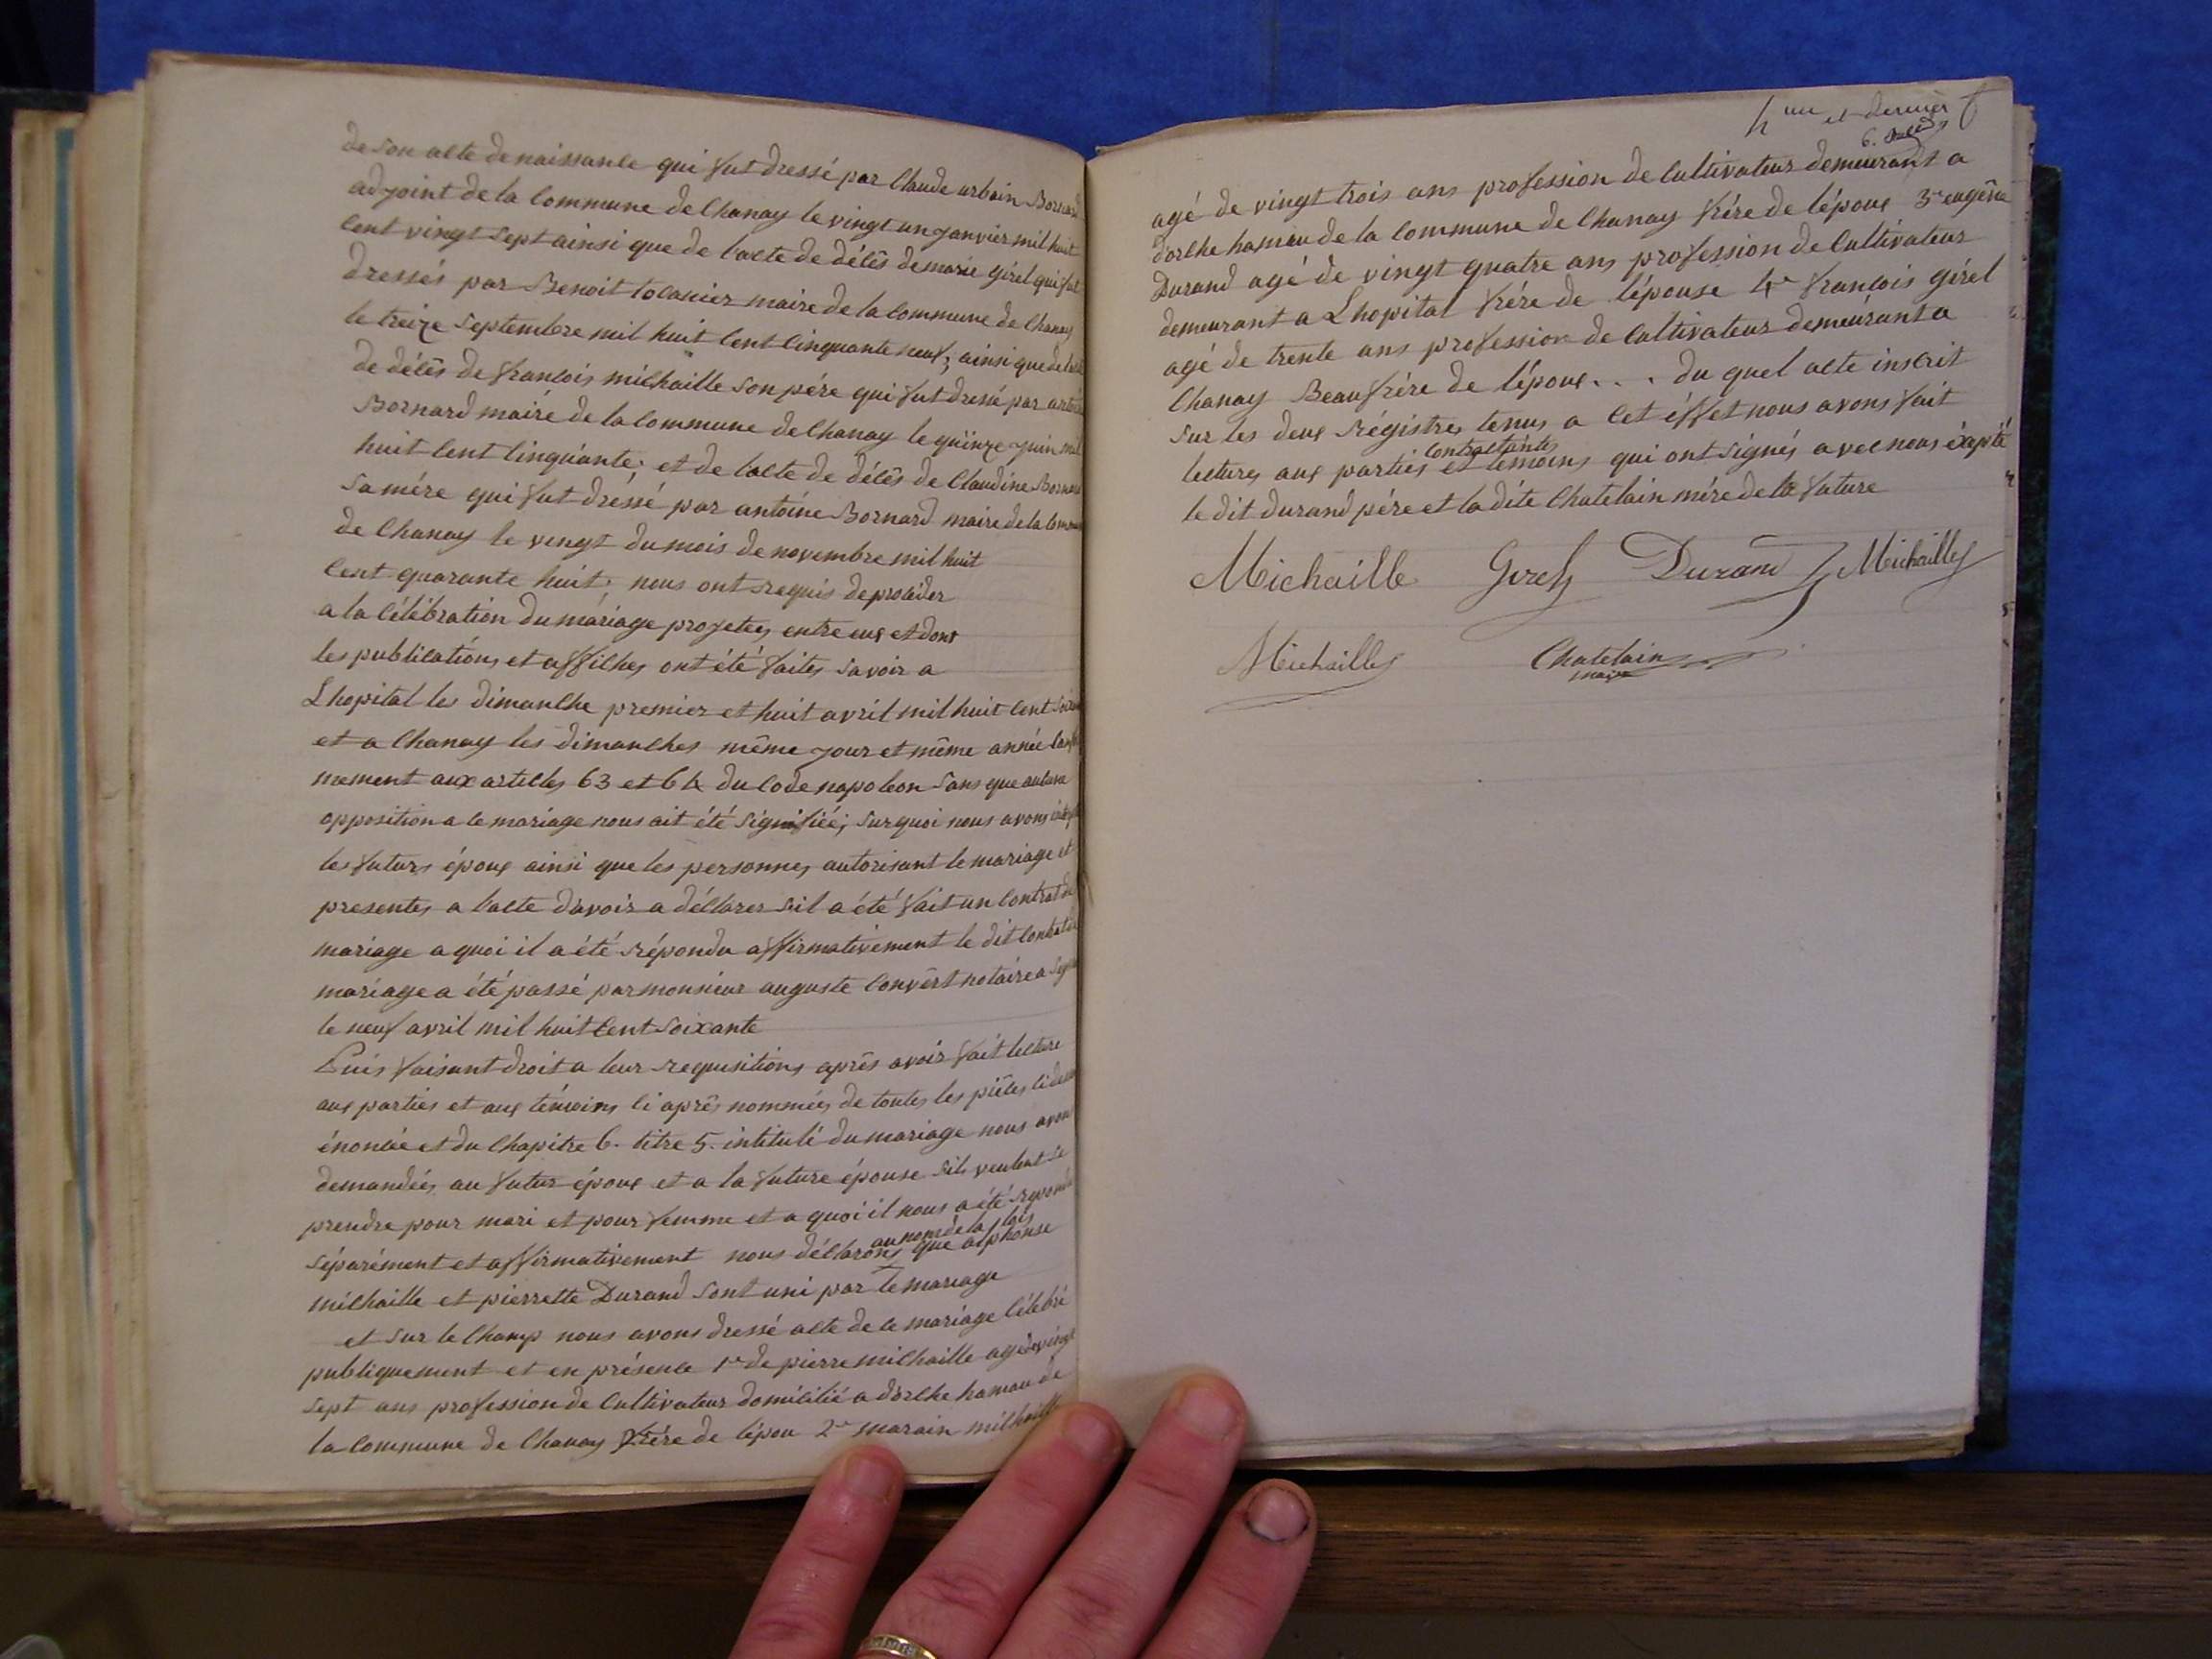 de son acte de naissance qui fut dressé par Claude urbain Bornard
adjoint de la Commune de Chanay le vingt un janvier mil huit
Cent vingt sept ainsi que de l'acte de décès de marie girel qui fut
dressés par Benoit maire de la Commune de Chanay
le treize Septembre mil huit Cent Cinquante neuf; ainsi que de l'acte
de décès de françois michaille son pére qui fut dressé par antoine
Bornard maire de la Commune de Chanay le quinze juin mil
huit Cent Cinquante; et de l'acte de décès de Claudine Bornard
sa mére qui fut dréssé par antoine Bornard maire de la Commune
de Chanay le vingt du mois de novembre mil huit
Cent quarante huit; nous ont requis de procéder
a la Célébration du mariage projetes entre eux et dont
les publications et affiches ont été faites savoir a
Lhopital les dimanche premier et huit avril mil huit Cent Soixante
et a Chanay les dimanches même jour et même année Confor
mement aux articles 63 et 64 du Code napoleon sans que aucune
opposition a ce mariage nous ait été signifiée; sur quoi nous avons
les futurs époux ainsi que les personnes autorisant le mariage et
presentes a l'acte d'avoir a déclarer s'il a été fait un Contrat de
mariage a quoi il a été répondu affirmativement le dit Contrat de
mariage a été passé par monsieur auguste Convert notaire a
le neuf avril mil huit Cent Soixante
Puis faisant droit a leur requisitions aprês avoir fait lecture
aux parties et aux témoins Ci aprês nommées de toutes les piêces Ci dessus
énoncée et du Chapitre 6. titre 5. intitulé du mariage nous avons
demandées au futur époux et a la future épouse s'ils veulent se
prendre pour mari et pour femme et a quoi il nous a été repondu
au nom de la lois
séparément et affirmativement nous déclarons que alphonse
michaille et pierrette Durand sont uni par le mariage
et sur le Champ nous avons dressé acte de ce mariage Célébré
publiquement et en présence 1er de pierre michaille agé de vingt
sept ans profession de Cultivateur domicilié a dorche hamau de
la Commune de Chanay frére de l'épou 2e marain michaille
et dernier
6.
agé de vingt trois ans profession de Cultivateur demeurant a
dorche hameau de la Commune de Chanay frére de l'époux 3e eugêne
Durand agé de vingt quatre ans profession de Cultivateur
demeurant a Lhopital frére de l'épouse 4e françois girel
agé de trente ans profession de Cultivateur demeurant a
Chanay Beaufrére de l'époux . . . du quel acte inscrit
sur les deux régistres tenus a Cet éffet nous avons fait
Contractantes
lectures aux parties et temoins qui ont signés avec nous éxcepté
le dit durand pére et la dite Chatelain mére de la future
Michaille Girel Durand Michaille
Michaille Chatelain
maire